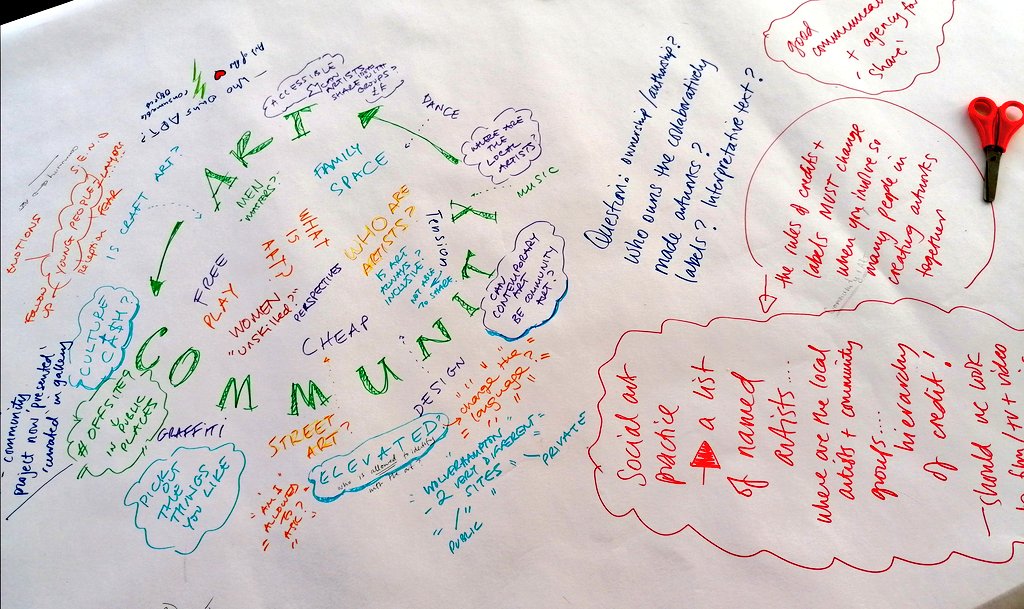 ART
COMMUNITY
ACCESSIBLE
CAN
ARTISTS
SHARE WITH
GROUPS
DANCE
WHERE ARE
THE
LOCAL
ARTISTS?
MUSIC
WHO OWNS ART?
IS CRAFT ART?
MEN
MAKERS?
FAMILY
SPACE
WHAT
IS
ART?
WHO ARE
ARTISTS?
Tension
IS ART
ALWAYS
INCLUSIVE?
NOT ABLE
TO SHARE.
CAN
CONTEMPORARY
ART
BE COMMUNITY
ART?
FREE
PLAY
WOMEN
"UNSKILLED?"
PERSPECTIVES
CHEAP
S.E.N.D
YOUNG PEOPLE
FEAR
EMOTIONS
FOLLOW
UP
CULTURE
CA$H?
"COMMUNITY
project now presented'
'curated in gallery
OFFSITE?
IN
PUBLIC
PLACES
GRAFFITI
PICK
OUT
THE
THINGS
YOU LIKE
STREET
ART?
DESIGN
"change the
language?"
ELEVATED?
who is allowed to identify
"AM I
ALLOWED
TO
ASK?"
WOLVERHAMPTON
- 2 VERY DIFFERENT
SITES
PUBLIC
/
PRIVATE
Question: ownership/authorship?
who owns the collaboratively
made artworks?
labels? Interpretative text?
good
communication
+ agency to
'share'
the rules of credits +
labels MUST change
when you involve so
many people in
creating artworks
together
Social art
practice
a list
of named
artists....
where are the local
artists + community
groups....
hierarchy
of credit!
— should we look
to film/tv + video